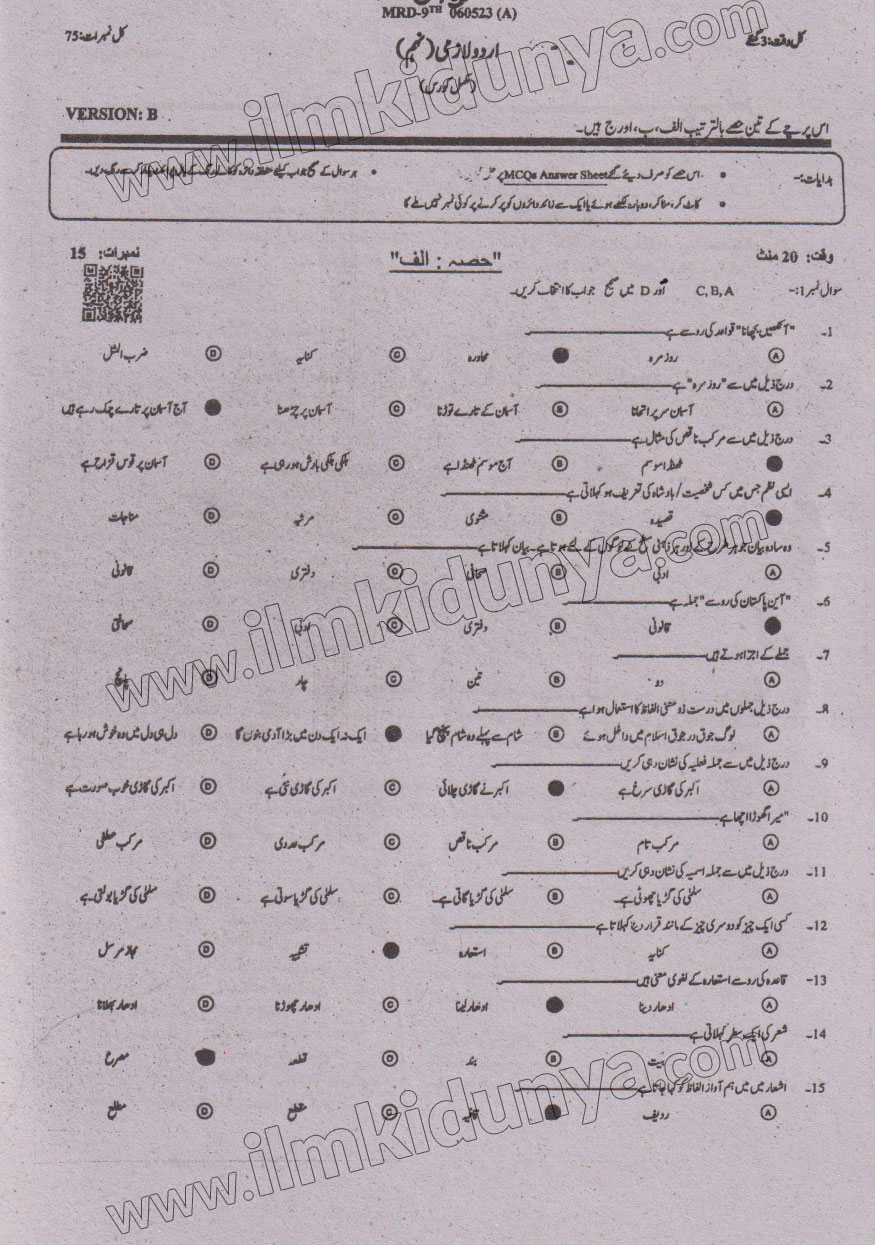 MRD-9TH 060523 (A)
کل وقت: 3 گھنٹے
اردو لازمی (نہم)
کل نمبرات: 75
(مکمل کورس)
VERSION: B
اس پرچے کے تین حصے بالترتیب الف، ب، اور ج ہیں۔
ہدایات:-
• اس حصے کو صرف دیئے گئے MCQs Answer Sheet پر
• ہر سوال کے صحیح جواب کیلئے متعلقہ دائرہ کو
• کاٹ کر، مٹا کر، دوبارہ لکھے ہوئے یا ایک سے زائد دائروں کو پُر کرنے پر کوئی نمبر نہیں ملے گا
وقت: 20 منٹ
"حصہ : الف"
نمبرات: 15
سوال نمبر 1:- C, B, A اور D میں صحیح جواب کا انتخاب کریں۔
1۔ "آنکھیں بچھانا" قواعد کی رو سے ہے
A روزمرہ محاورہ C کنایہ D ضرب المثل
2۔ درج ذیل میں سے "روزمرہ" ہے
A آسمان سر پر اٹھانا B آسمان کے تارے توڑنا C آسمان پر چڑھنا آج آسمان پر تارے چمک رہے ہیں
3۔ درج ذیل میں سے مرکب ناقص کی مثال ہے
ٹھنڈا موسم B آج موسم ٹھنڈا ہے C ہلکی ہلکی بارش ہورہی ہے D آسمان پر قوس قزاح ہے
4۔ ایسی نظم جس میں کس شخصیت / بادشاہ کی تعریف ہو کہلاتی ہے
قصیدہ B مثنوی C مرثیہ D مناجات
5۔ وہ سادہ بیان جو ہر طرح کے اور ہر ذہنی سطح کے لوگوں کے لئے ہوتا ہے۔ بیان کہلاتا ہے
A ادبی B صحافتی C دفتری D قانونی
6۔ "آئین پاکستان کی رو سے" جملہ ہے
قانونی B دفتری C ادبی D صحافتی
7۔ جملے کے اجزا ہوتے ہیں
A دو B تین C چار D پانچ
8۔ درج ذیل جملوں میں درست ذو معنی الفاظ کا استعمال ہوا ہے
A لوگ جوق در جوق اسلام میں داخل ہوئے B شام سے پہلے وہ شام پہنچ گیا ایک نہ ایک دن میں بڑا آدمی بنوں گا D دل ہی دل میں وہ خوش ہورہا ہے
9۔ درج ذیل میں سے جملہ فعلیہ کی نشان دہی کریں
A اکبر کی گاڑی سرخ ہے اکبر نے گاڑی چلائی C اکبر کی گاڑی نئی ہے D اکبر کی گاڑی خوب صورت ہے
10۔ "میرا گھوڑا اچھا ہے
A مرکب تام B مرکب ناقص C مرکب عددی D مرکب عطفی
11۔ درج ذیل میں سے جملہ اسمیہ کی نشان دہی کریں
A سلمٰی کی گڑیا چھوٹی ہے۔ B سلمٰی کی گڑیا گاتی ہے۔ C سلمٰی کی گڑیا سوتی ہے D سلمٰی کی گڑیا بولتی ہے
12۔ کسی ایک چیز کو دوسری چیز کے مانند قرار دینا کہلاتا ہے
A کنایہ B استعارہ تشبیہ D مجاز مرسل
13۔ قاعدہ کی رو سے استعارہ کے لغوی معنی ہیں
A ادھار دینا ادھار لینا C ادھار چھوڑنا D ادھار بھلانا
14۔ شعر کی ایک سطر کہلاتی ہے
A بیت B بند C قطعہ مصرع
15۔ اشعار میں میں ہم آواز الفاظ کو کہا جاتا ہے
A ردیف قافیہ C مقطع D مطلع
www.ilmkidunya.com
www.ilmkidunya.com
www.ilmkidunya.com